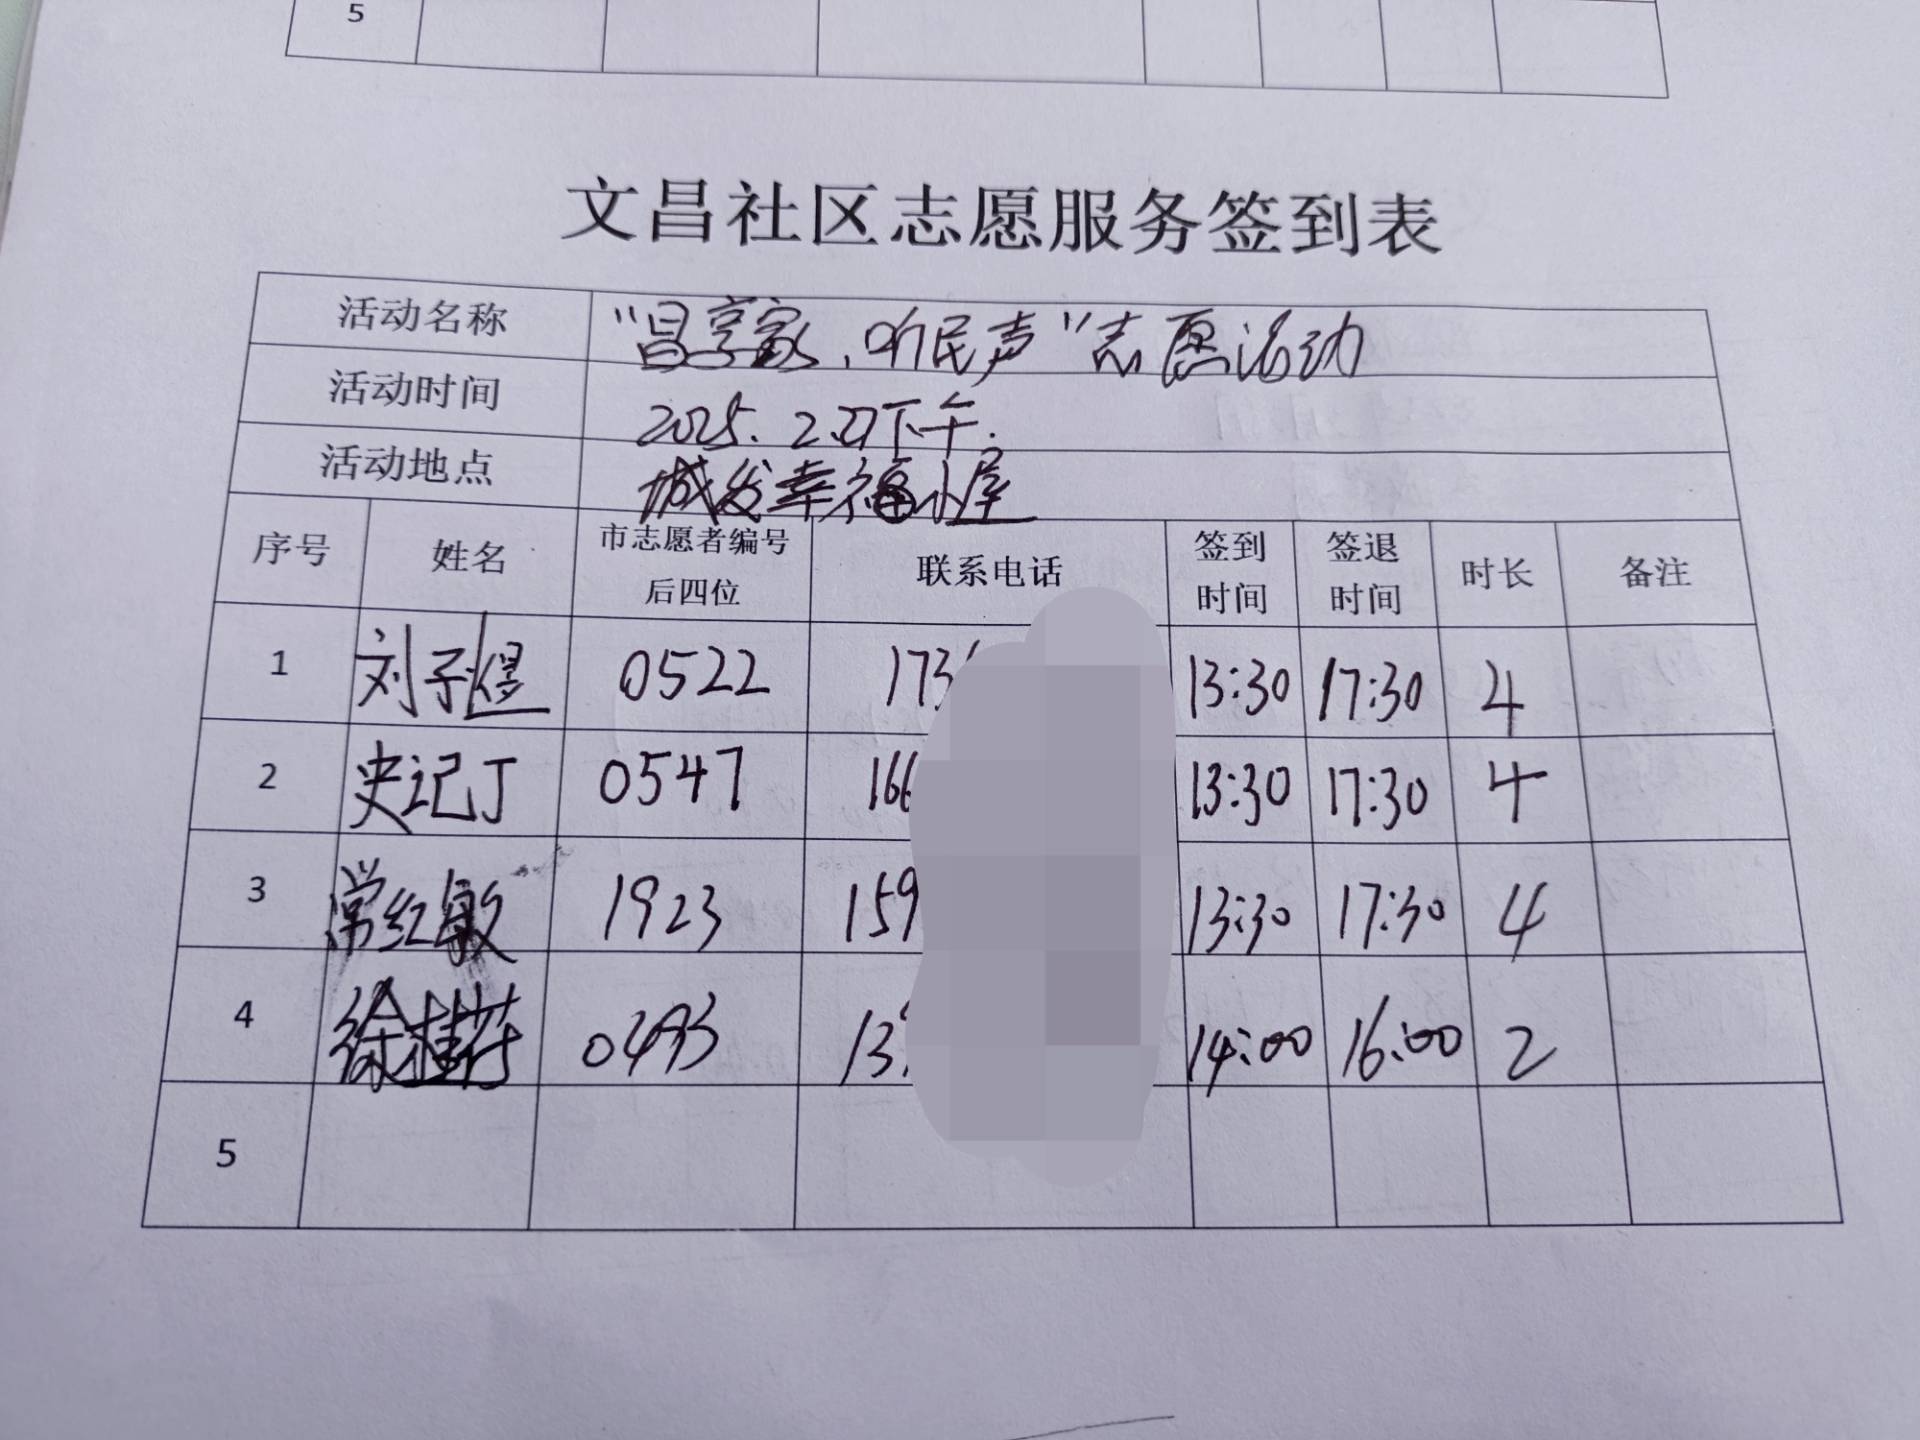 5
文昌社区志愿服务签到表
活动名称 "昌享家、听民声"志愿活动
活动时间 2025.2.27下午.
活动地点 城发幸福小屋
序号 姓名 市志愿者编号后四位 联系电话 签到时间 签退时间 时长 备注
1 刘子煜 0522 173 13:30 17:30 4
2 史记丁 0547 166 13:30 17:30 4
3 常红敏 1923 159 13:30 17:30 4
4 徐桂 0493 13 14:00 16:00 2
5